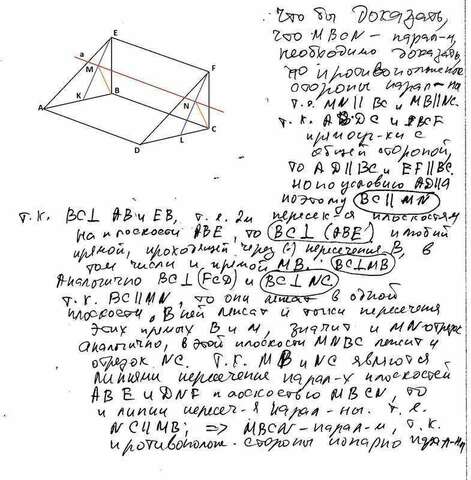 E
a
M
F
A
K
B
N
D
L
C
Что бы Доказать,
что MBCN - парал-м,
необходимо доказать,
что противоположные
стороны парал-ны
т.е. MN || BC и MB || NC.
т.к. ABDC и EBCF
прямоуг-ки с
общей стороной,
то AD || BC и EF || BC.
но по условию AD || a
поэтому BC || MN
т.к. BC ⊥ AB и EB, т.е. 2м пересек-ся плоскостям
на плоскости ABE, то BC ⊥ (ABE) и любой
прямой, проходящей через (·) пересечения B, в
том числе и прямой MB. BC ⊥ MB
Аналогично BC ⊥ (FCD) и BC ⊥ NC
т.к. BC || MN, то они лежат в одной
плоскости, в ней лежат и точки пересечения
этих прямых B и M, значит и MN отрезок
аналогично, в этой плоскости MNBC лежит и
отрезок NC. Т.к. MB и NC являются
линиями пересечения парал-х плоскостей
ABE и DNF плоскостью MBCN, то
и линии пересеч-я парал-ны. т.е.
NC || MB; => MBCN - парал-м, т.к.
противополож. стороны попарно парал-ны